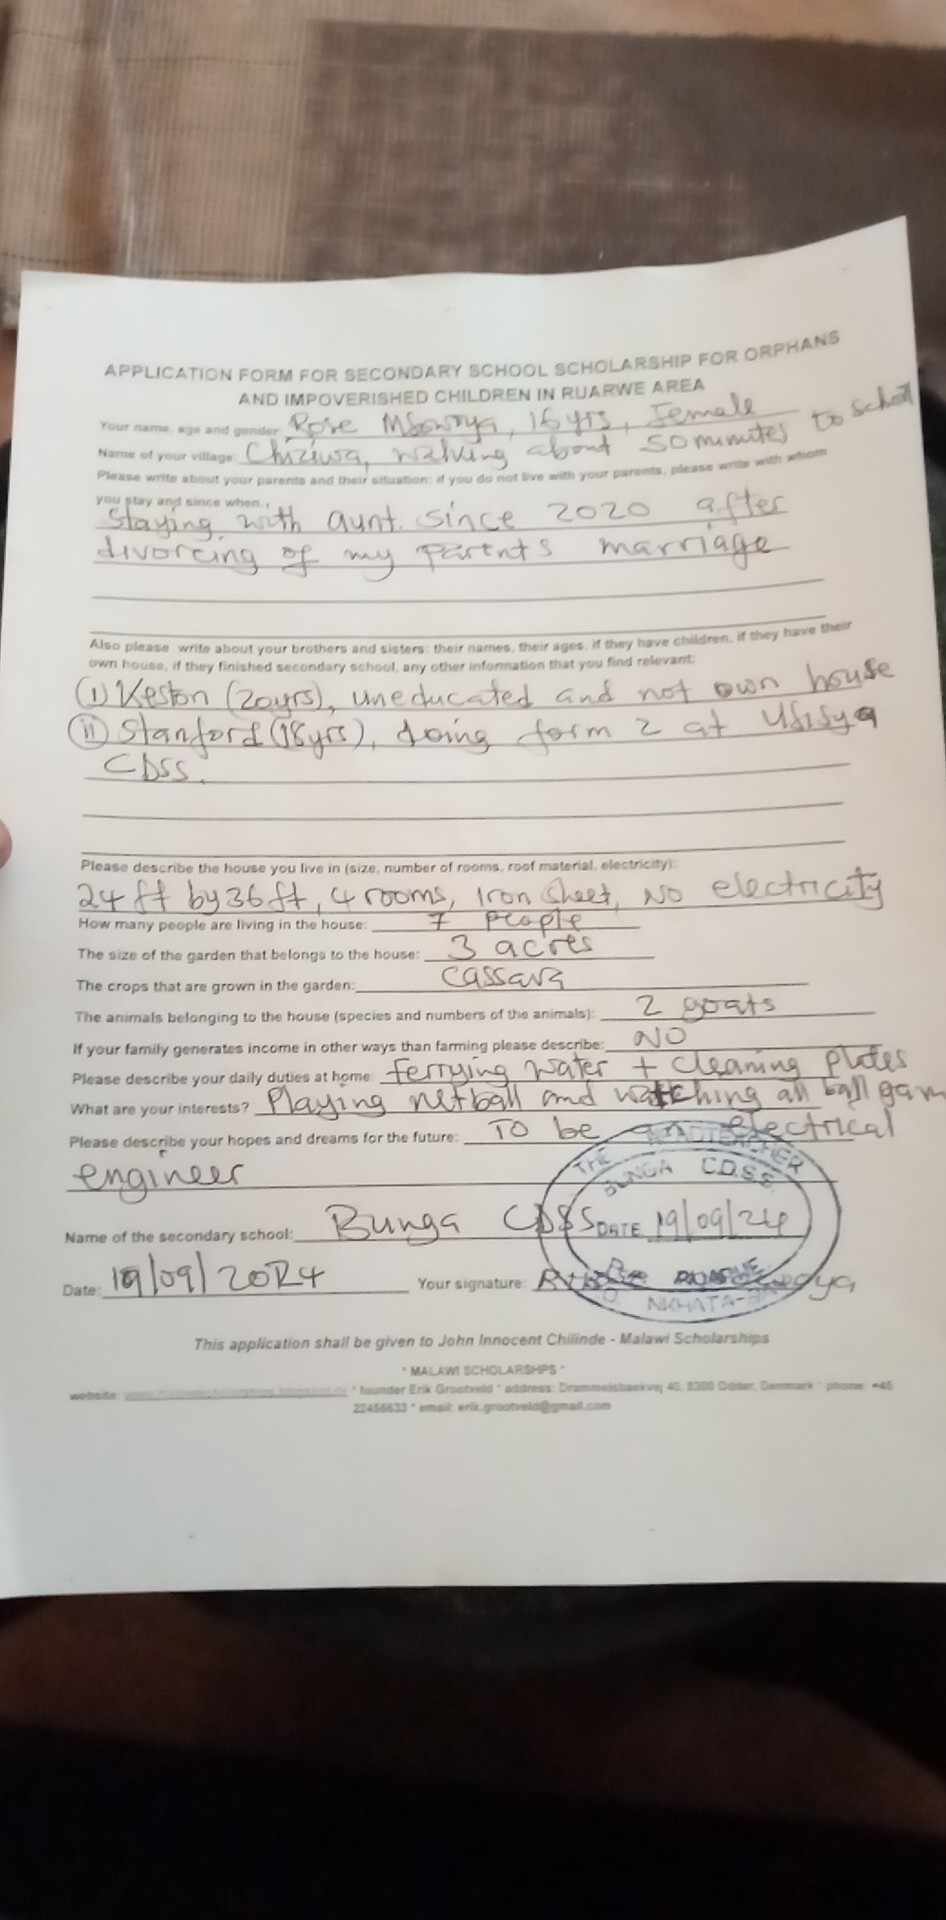 APPLICATION FORM FOR SECONDARY SCHOOL SCHOLARSHIP FOR ORPHANS
AND IMPOVERISHED CHILDREN IN RUARWE AREA
Your name, age and gender: Rose 16 yrs, Female
Name of your village: Chiziwa, walking about 50 minutes to school
Please write about your parents and their situation; if you do not live with your parents, please write with whom
you stay and since when.:
Staying with aunt since 2020 after
divorcing of my parents marriage
Also please write about your brothers and sisters: their names, their ages, if they have children, if they have their
own house, if they finished secondary school, any other information that you find relevant:
(i) Keston (20yrs), uneducated and not own house
(ii) Stanford (18yrs), doing form 2 at Usisya
CDSS.
Please describe the house you live in (size, number of rooms, roof material, electricity):
24 ft by 36 ft, 4 rooms, Iron sheet, No electricity
How many people are living in the house: 7 people
The size of the garden that belongs to the house: 3 acres
The crops that are grown in the garden: Cassava
The animals belonging to the house (species and numbers of the animals): 2 goats
If your family generates income in other ways than farming please describe: NO
Please describe your daily duties at home: Ferrying water + cleaning plates
What are your interests? Playing netball and watching all ball gam
Please describe your hopes and dreams for the future: To be an electrical
engineer
THE HEADTEACHER
BUNGA C.D.S.S.
Name of the secondary school: Bunga CDSS
DATE 19/09/24
Date: 19/09/2024 Your signature:
NKHATA-BAY
This application shall be given to John Innocent Chilinde - Malawi Scholarships
* MALAWI SCHOLARSHPS *
website: * founder Erik Grootveld * address: Drammelsbaekvej 40, 8300 Odder, Denmark * phone: +45
22456633 * email: erik.grootveld@gmail.com